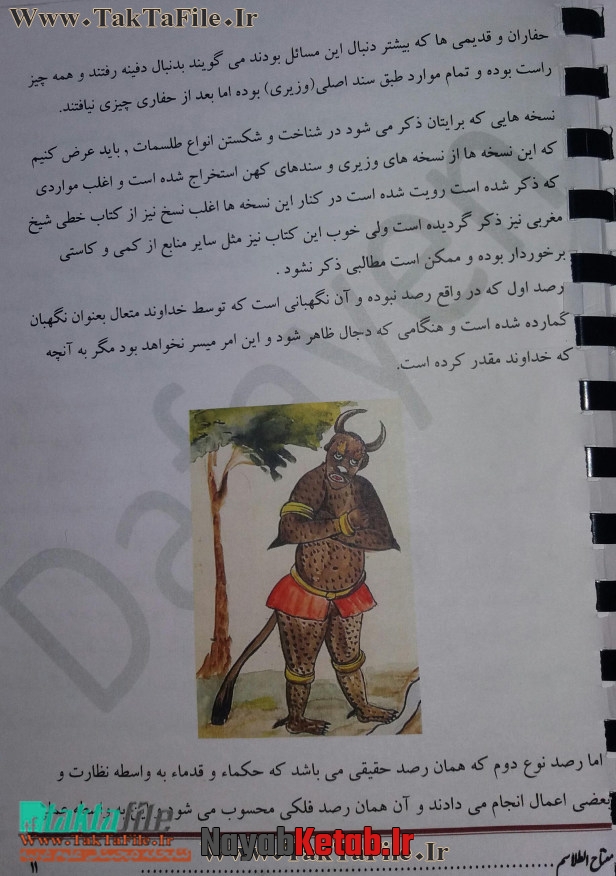 Www.TakTaFile.Ir
Www.TakTaFile.Ir
حفاران و قدیمی ها که بیشتر دنبال این مسائل بودند می گویند بدنبال دفینه رفتند و همه چیز
راست بوده و تمام موارد طبق سند اصلی(وزیری) بوده اما بعد از حفاری چیزی نیافتند.
نسخه هایی که برایتان ذکر می شود در شناخت و شکستن انواع طلسمات , باید عرض کنیم
که این نسخه ها از نسخه های وزیری و سندهای کهن استخراج شده است و اغلب مواردی
که ذکر شده است رویت شده است در کنار این نسخه ها اغلب نسخ نیز از کتاب خطی شیخ
مغربی نیز ذکر گردیده است ولی خوب این کتاب نیز مثل سایر منابع از کمی و کاستی
برخوردار بوده و ممکن است مطالبی ذکر نشود .
رصد اول که در واقع رصد نبوده و آن نگهبانی است که توسط خداوند متعال بعنوان نگهبان
گمارده شده است و هنگامی که دجال ظاهر شود و این امر میسر نخواهد بود مگر به آنچه
که خداوند مقدر کرده است.
Dafayen
اما رصد نوع دوم که همان رصد حقیقی می باشد که حکماء و قدماء به واسطه نظارت و
بعضی اعمال انجام می دادند و آن همان رصد فلکی محسوب می شود
taktafile
Www.TakTaFile.Ir
NayabKetab.Ir
Www.TakTaFile.Ir
مفتاح الطلاسم
۱۱